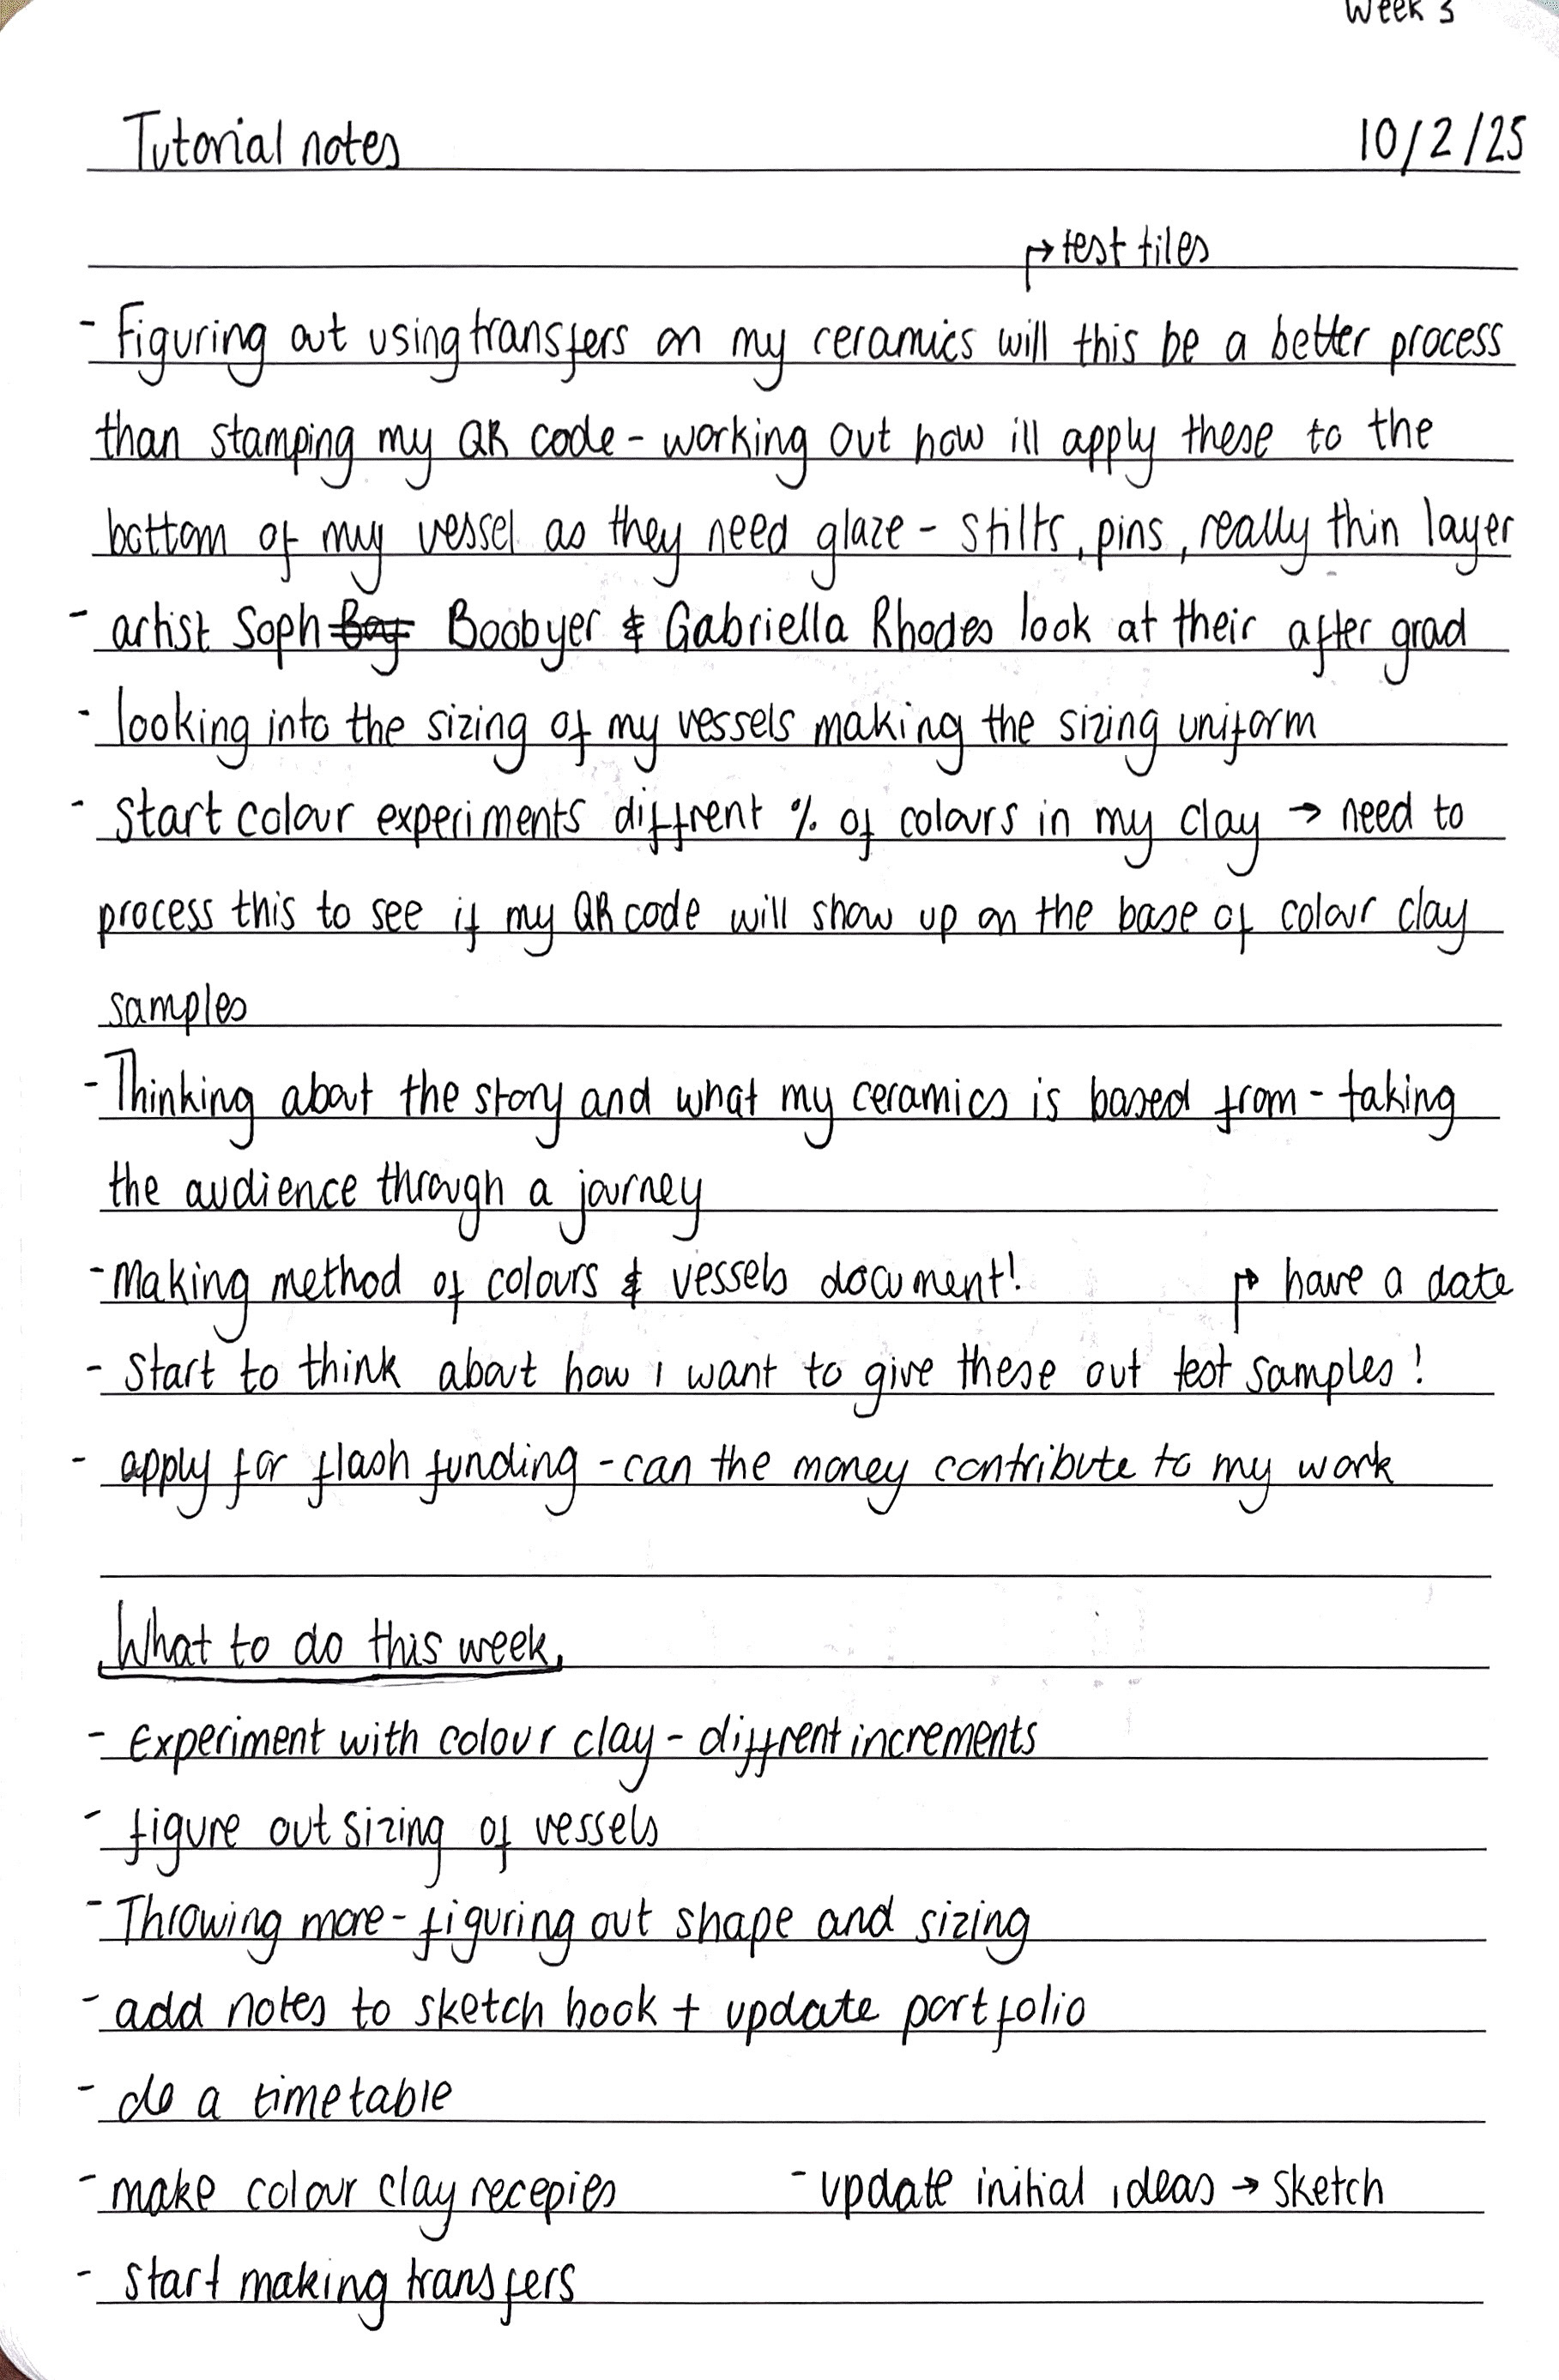 Week 3
Tutorial notes 10/2/25
↱ test tiles
- Figuring out using transfers on my ceramics will this be a better process
than stamping my QR code - working out how ill apply these to the
bottom of my vessel as they need glaze - stilts, pins, really thin layer
- artist Soph Boobyer & Gabriella Rhodes look at their after grad
- looking into the sizing of my vessels making the sizing uniform
- Start colour experiments diffrent % of colours in my clay → need to
process this to see if my QR code will show up on the base of colour clay
samples
- Thinking about the story and what my ceramics is based from - taking
the audience through a journey
- Making method of colours & vessels document! ↱ have a date
- Start to think about how I want to give these out test samples!
- apply for flash funding - can the money contribute to my work
What to do this week
- Experiment with colour clay - diffrent increments
- figure out sizing of vessels
- Throwing more - figuring out shape and sizing
- add notes to sketch book + update portfolio
- do a timetable
- make colour clay recepies - update initial ideas → sketch
- Start making transfers